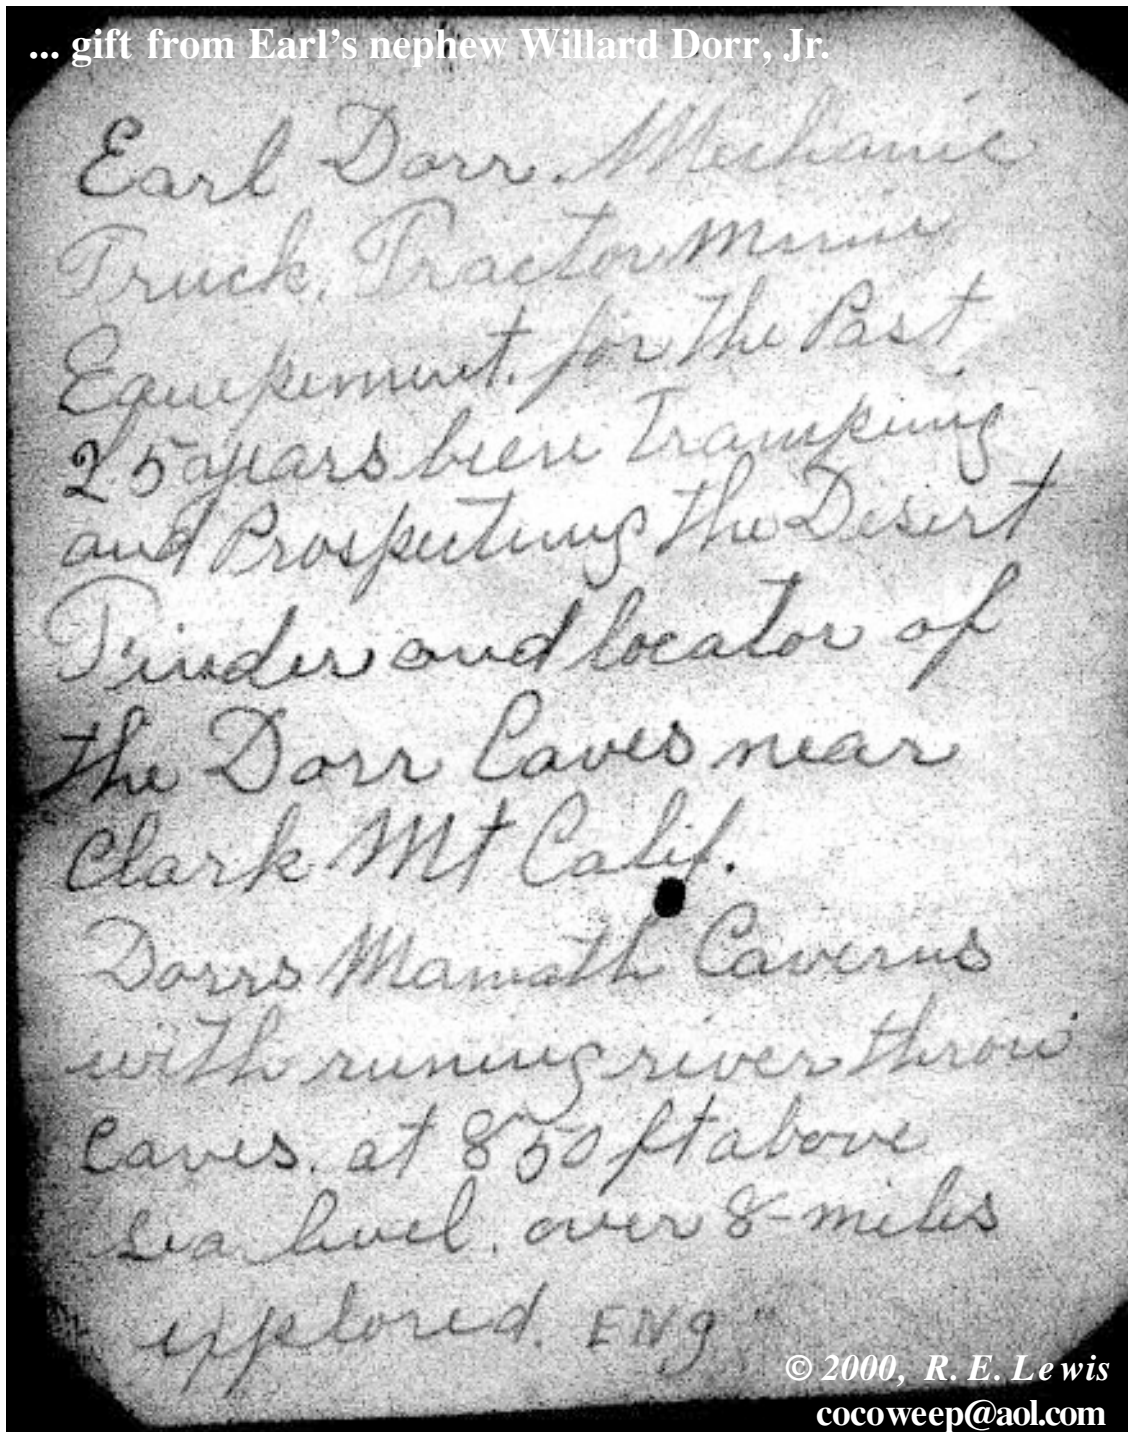 ... gift from Earl's nephew Willard Dorr, Jr.
Earl Dorr. Mechanic
Truck, Tractor Minin
Equipement, for the Past
25 years been Tramping
and Prospecting the Desert
Finder and locator of
the Dorr Caves near
Clark Mt Calif.
Dorrs Mamath Caverns
with runing river throw
Caves. at 850 ft above
Sea level. over 8-miles
explored. ENg"
© 2000, R. E. Lewis
cocoweep@aol.com